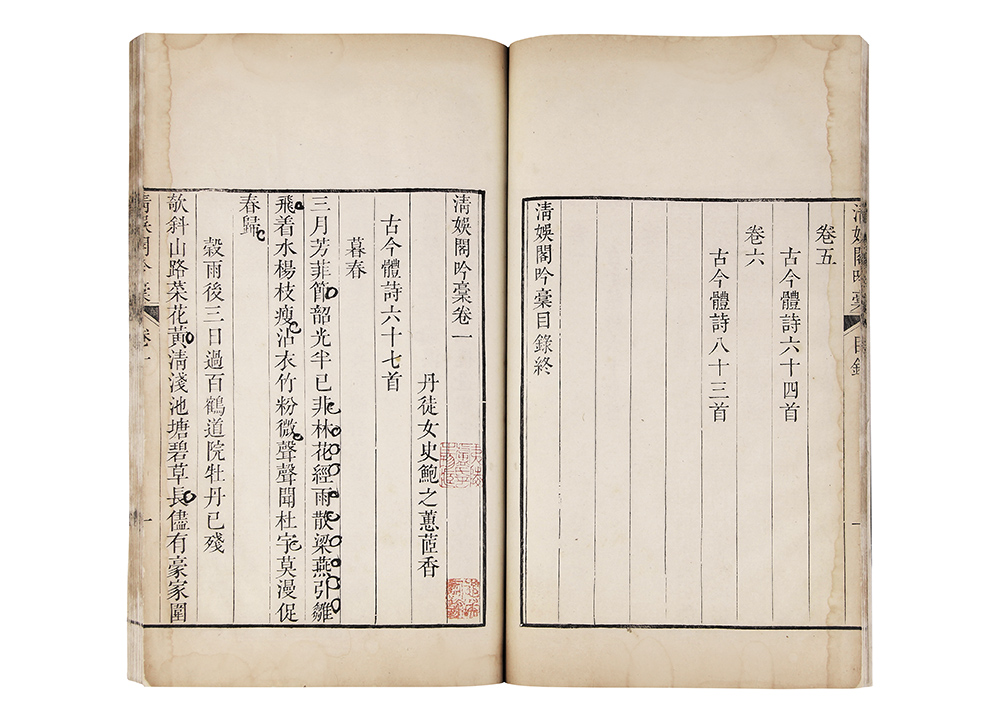 清娛閣吟稾 目錄
卷五
古今體詩六十四首
卷六
古今體詩八十三首
清娛閣吟稾目錄終
一
清娛閣吟稾卷一
丹徒女史鮑之蕙茝香
古今體詩六十七首
暮春
三月芳菲節韶光半已非林花經雨散梁燕引雛
飛着水楊枝瘦沾衣竹粉微聲聲聞杜宇莫漫促
春歸
穀雨後三日過百鶴道院牡丹已殘
欹斜山路菜花黃清淺池塘碧草長儘有豪家圍
清娛閣吟稾 卷一
一